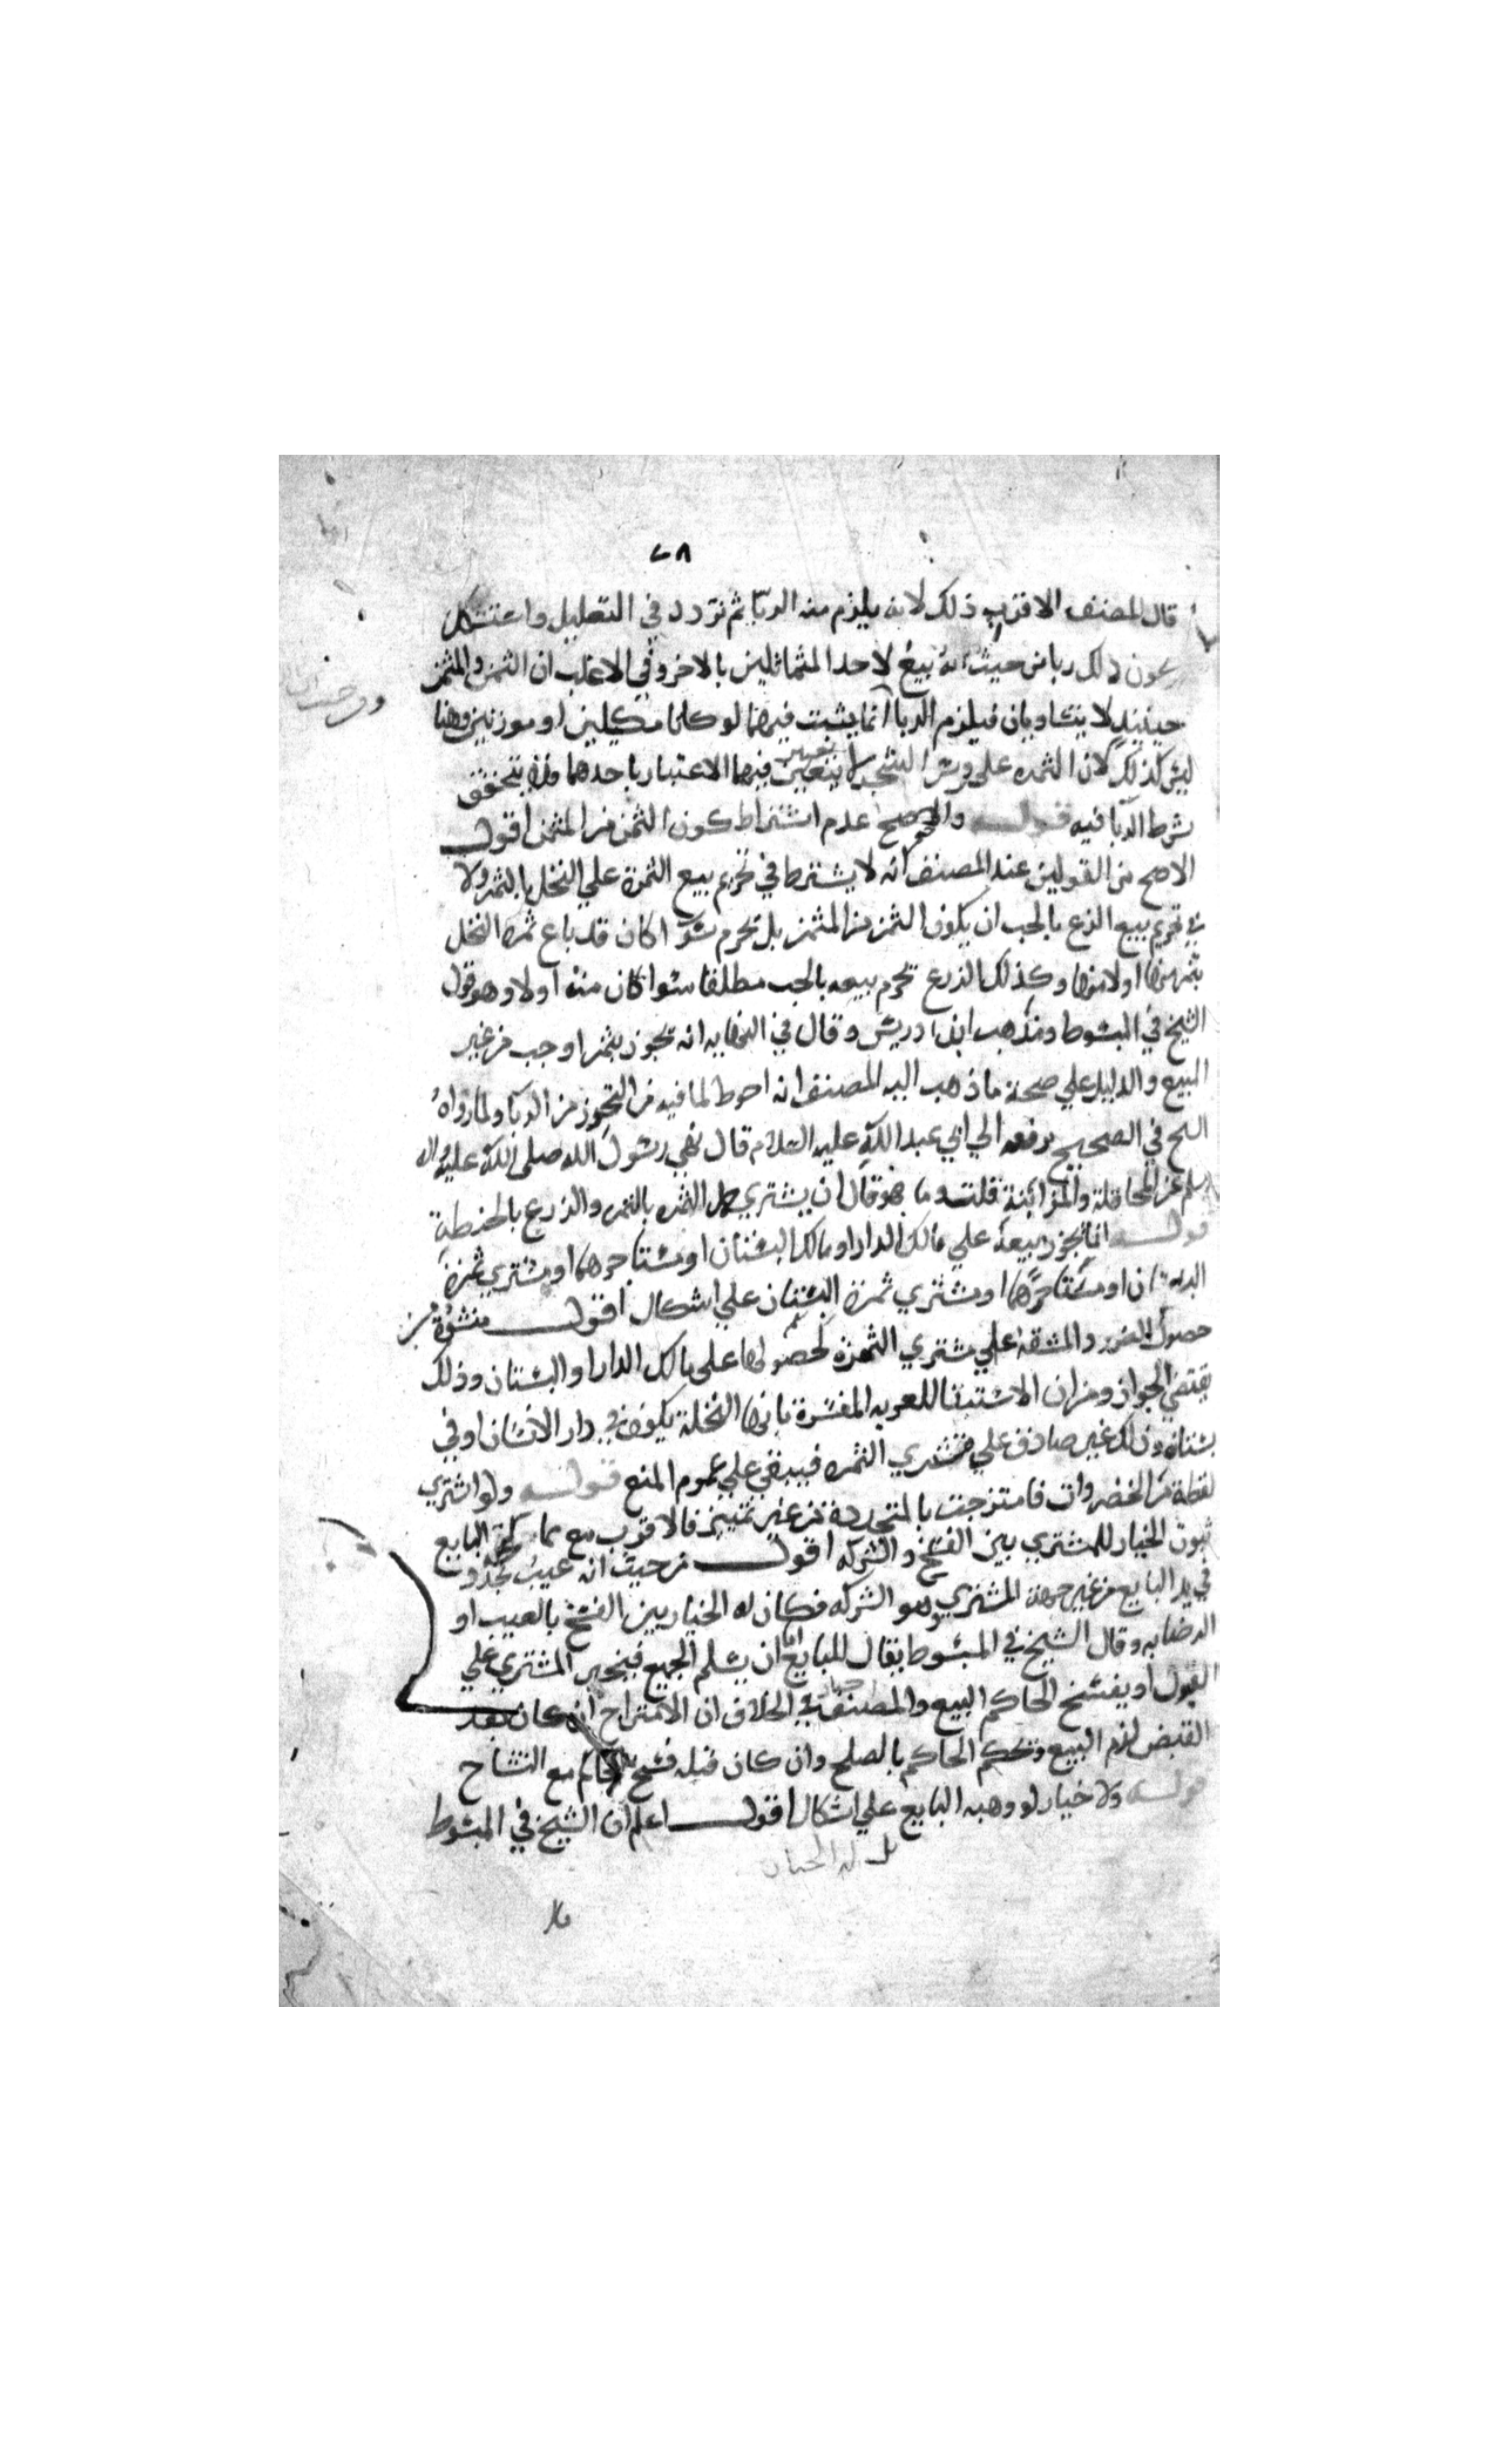 ٢٨
قال المصنف الاقرب ذلك لانه يلزم منه الربا ثم تردد في التعليل واستشكل
كون ذلك ربا من حيث انه بيع لاحد المتماثلين بالاخر وفي الاغلب ان الثمن والمثمن
حينئذ لا يتساويان فيلزم الربا انما يثبت فيهما لو كانا مكيلين او موزنين وهنا
ليس كذلك لان الثمره على روس الشجر لا يتعين فيها الاعتبار باحدهما فلم يتحقق
شرط الربا فيه قوله والاصح عدم اشتراط كون الثمن من المثمن اقول
الاصح من القولين عند المصنف انه لا يشترط في تحريم بيع الثمرة علي النخل بالتمر ولا
في تحريم بيع الزرع بالحب ان يكون الثمن من المثمن بل تحرم سوا كان قد باع ثمرة النخل
بتمر منها او لا منها وكذلك الزرع تحرم بيعه بالحب مطلقا سوا كان منه اولا وهو قول
الشيخ في المبسوط ومذهب ابن ادريس وقال في النهايه انه تجوز بتمر او حب من غير
المبيع والدليل علي صحة ما ذهب اليه المصنف انه احوط لما فيه من التحرز من الربا ولما رواه
الشيخ في الصحيح يرفعه الي ابي عبد الله عليه السلام قال نهي رسول الله صلى الله عليه واله
وسلم عن المحاقلة والمزابنة قلت وما هو قال ان يشتري حمل التمره بالتمر والزرع بالحنطة
قوله انما يجوز بيعه علي مالك الدار او مالك البستان او مستاجرهما او مشتري ثمرة
البستان او مستاجرهما او مشتري ثمرة البستان علي اشكال اقول منشؤه من
حصول الضرر والمشقه علي مشتري الثمرة كحصولها على مالك الدار او البستان وذلك
يقتضي الجواز ومن ان الاستثنا للعريه المفسرة بانها النخلة يكون في دار الانسان او في
بستانه وذلك غير صادق علي مشتري الثمره فيبقي علي عموم المنع قوله ولو اشتري
لقطة من الخضروات فامتزجت بالمتجددة من غير تمييز فالاقرب مع مماحكة البايع
ثبوت الخيار للمشتري بين الفسخ والشركه اقول من حيث انه عيب تجدد
في يد البايع من غير جهة المشتري وهو الشركه فكان له الخيار بين الفسخ بالعيب او
الرضا به وقال الشيخ في المبسوط يقال للبايع اما ان يسلم الجميع فيجبر المشتري علي
القبول او يفسخ الحاكم البيع والمصنف في الخلاف ان الامتزاج ان كان بعد
القبض لزم البيع وتحكم الحاكم بالصلح وان كان قبله فسخ الحاكم مع التشاح
قوله ولا خيار لو وهبه البايع علي اشكال اقول اعلم ان الشيخ في المبسوط